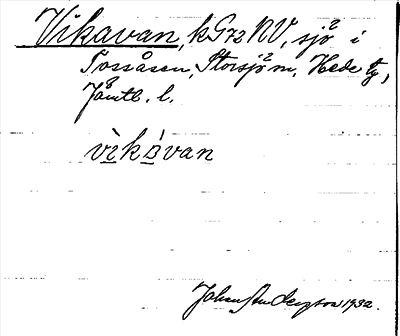 Vikavan, kG72 NV, sjö i
Tossåsen, Storsjö sn, Hede tg,
Jämtl. l.
vikavan
Johan Anderson 1932.